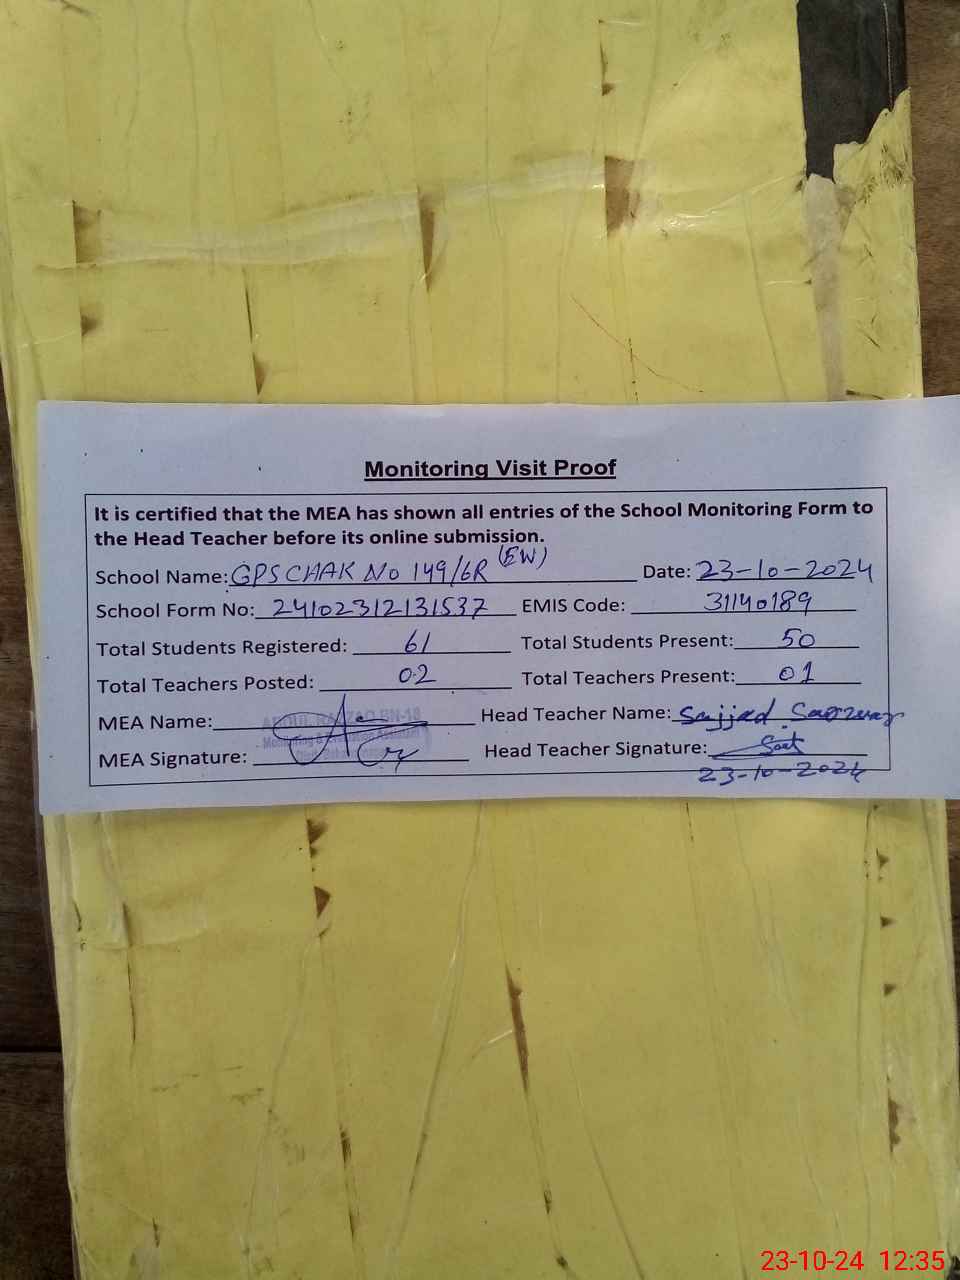 Monitoring Visit Proof
It is certified that the MEA has shown all entries of the School Monitoring Form to
the Head Teacher before its online submission.
School Name: GPS CHAK No 149/6R (EW) Date: 23-10-2024
School Form No: 24102312131537 EMIS Code: 31140189
Total Students Registered: 61 Total Students Present: 50
Total Teachers Posted: 02 Total Teachers Present: 01
MEA Name: ABDUL RAZZAQ Head Teacher Name: Sajjad Sarwar
MEA Signature: Head Teacher Signature:
23-10-2024
23-10-24 12:35